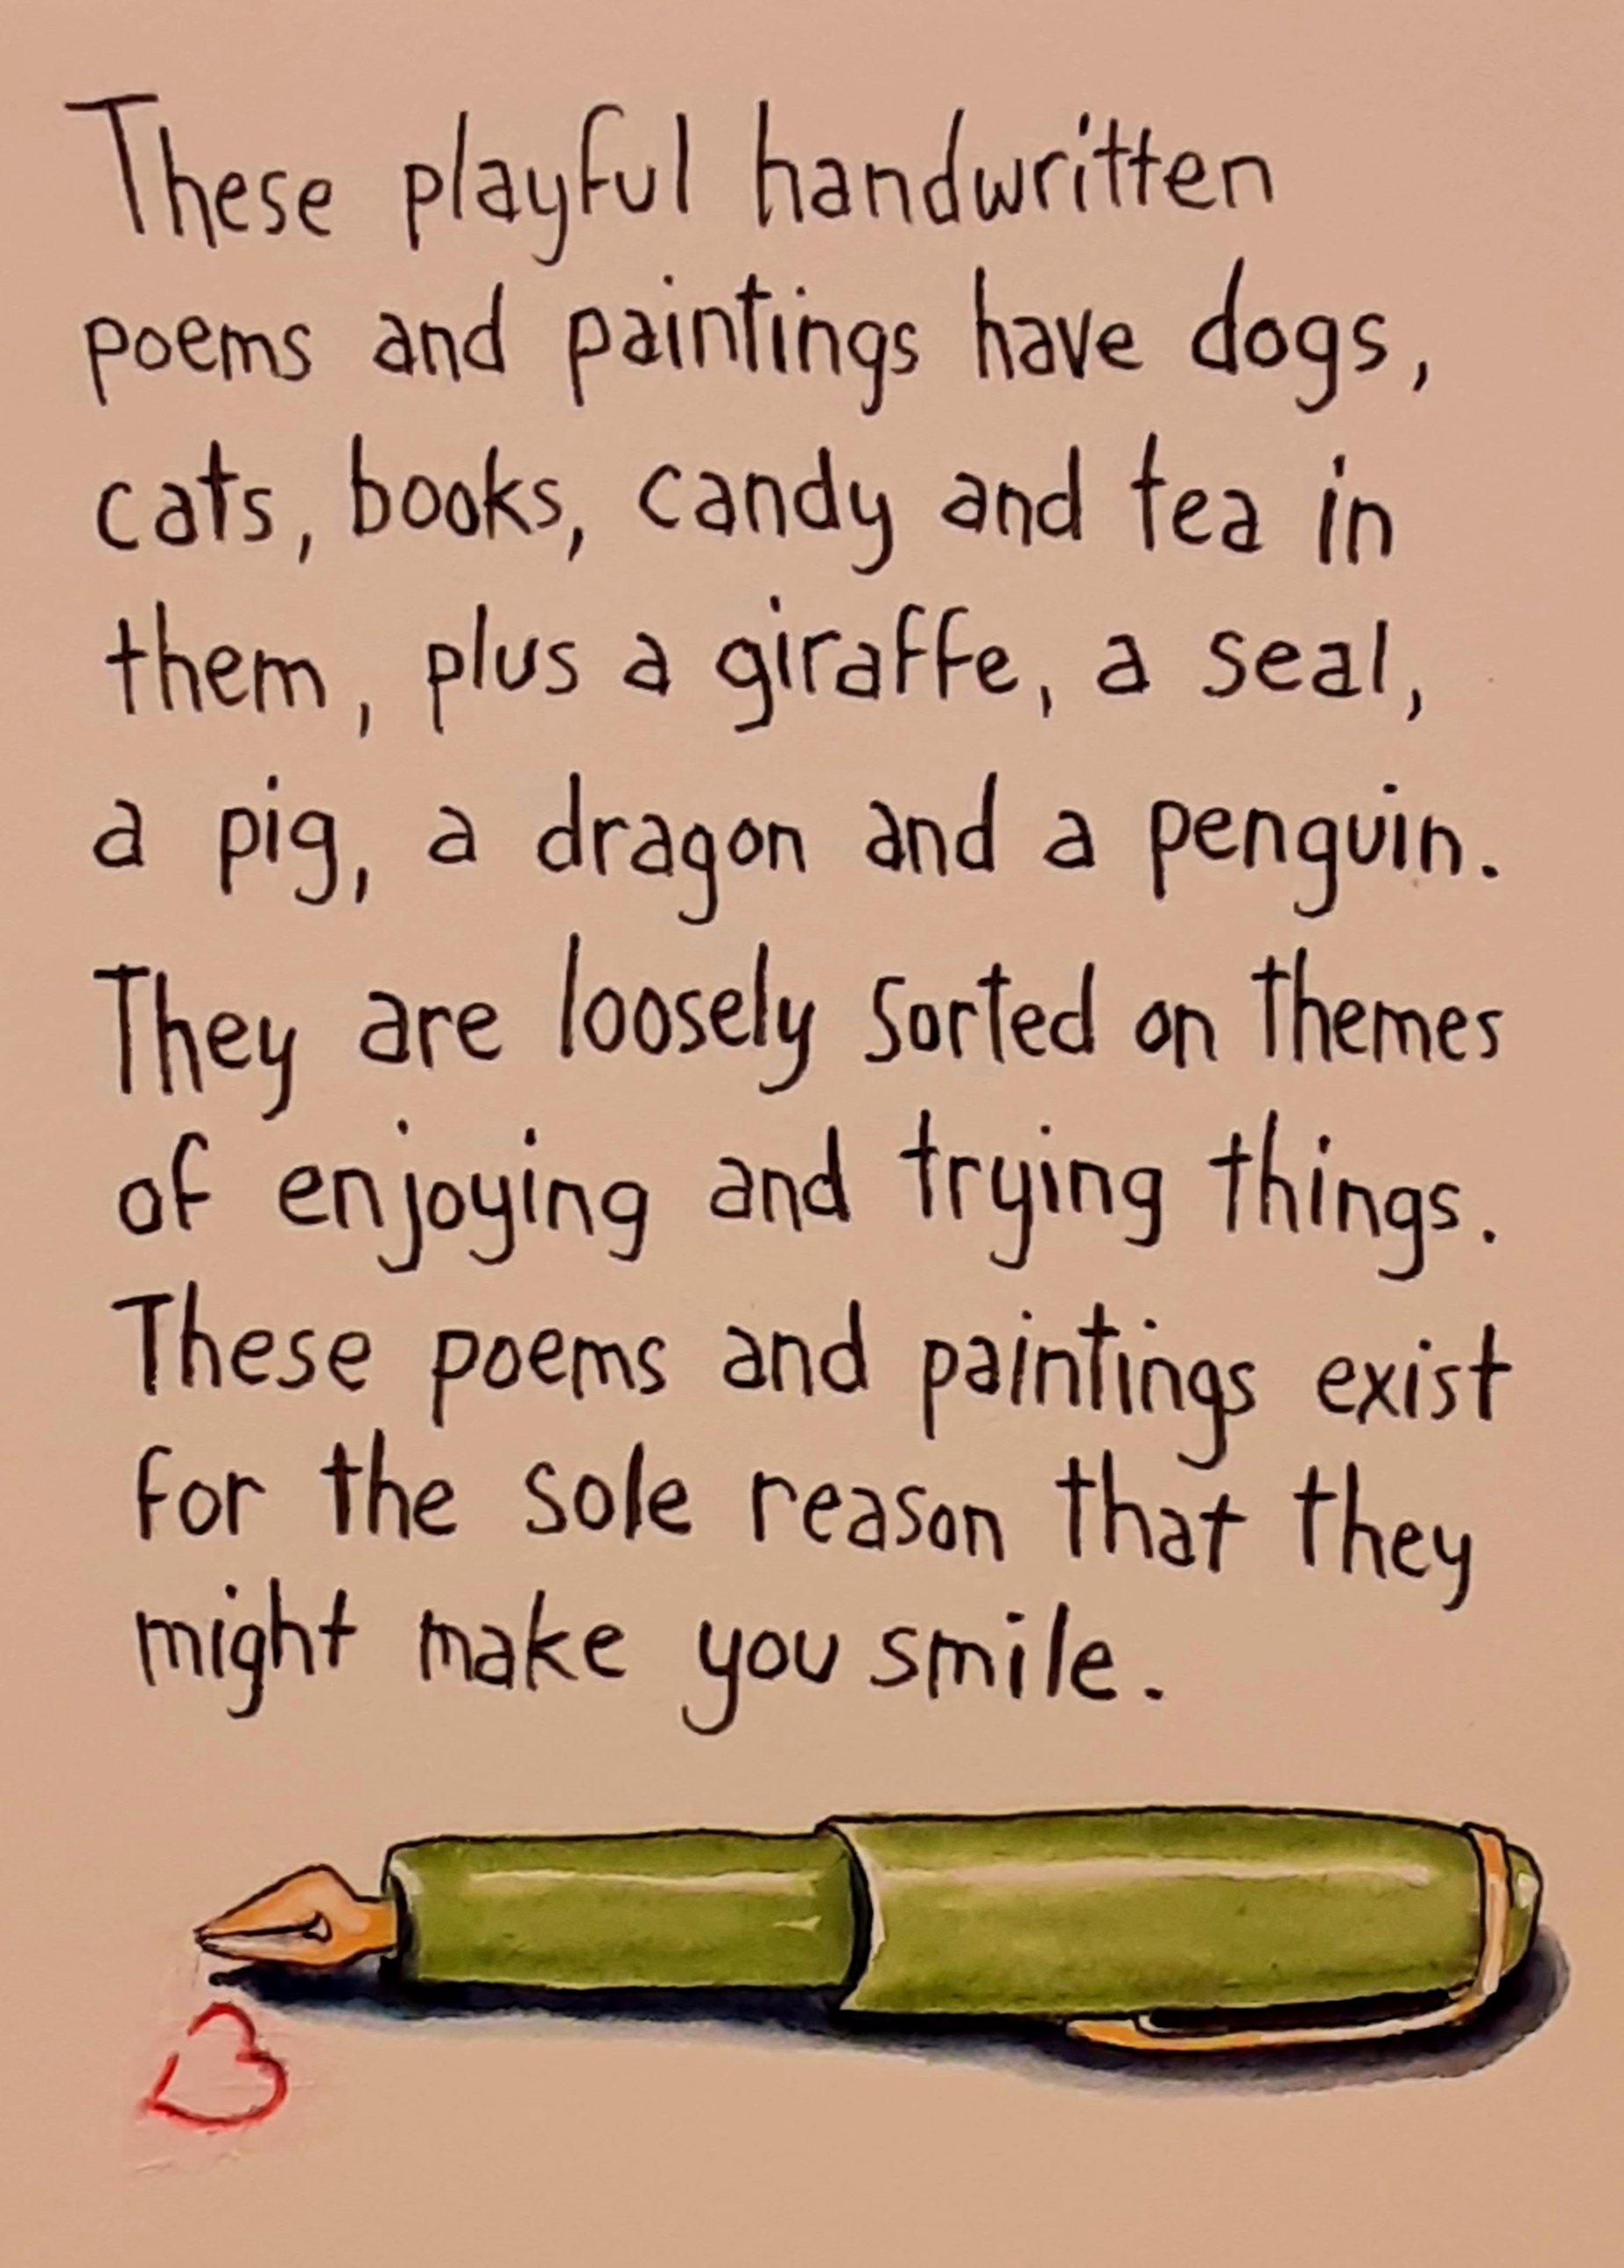 These playful handwritten
poems and paintings have dogs,
cats, books, candy and tea in
them, plus a giraffe, a seal,
a pig, a dragon and a penguin.
They are loosely sorted on themes
of enjoying and trying things.
These poems and paintings exist
for the sole reason that they
might make you smile.